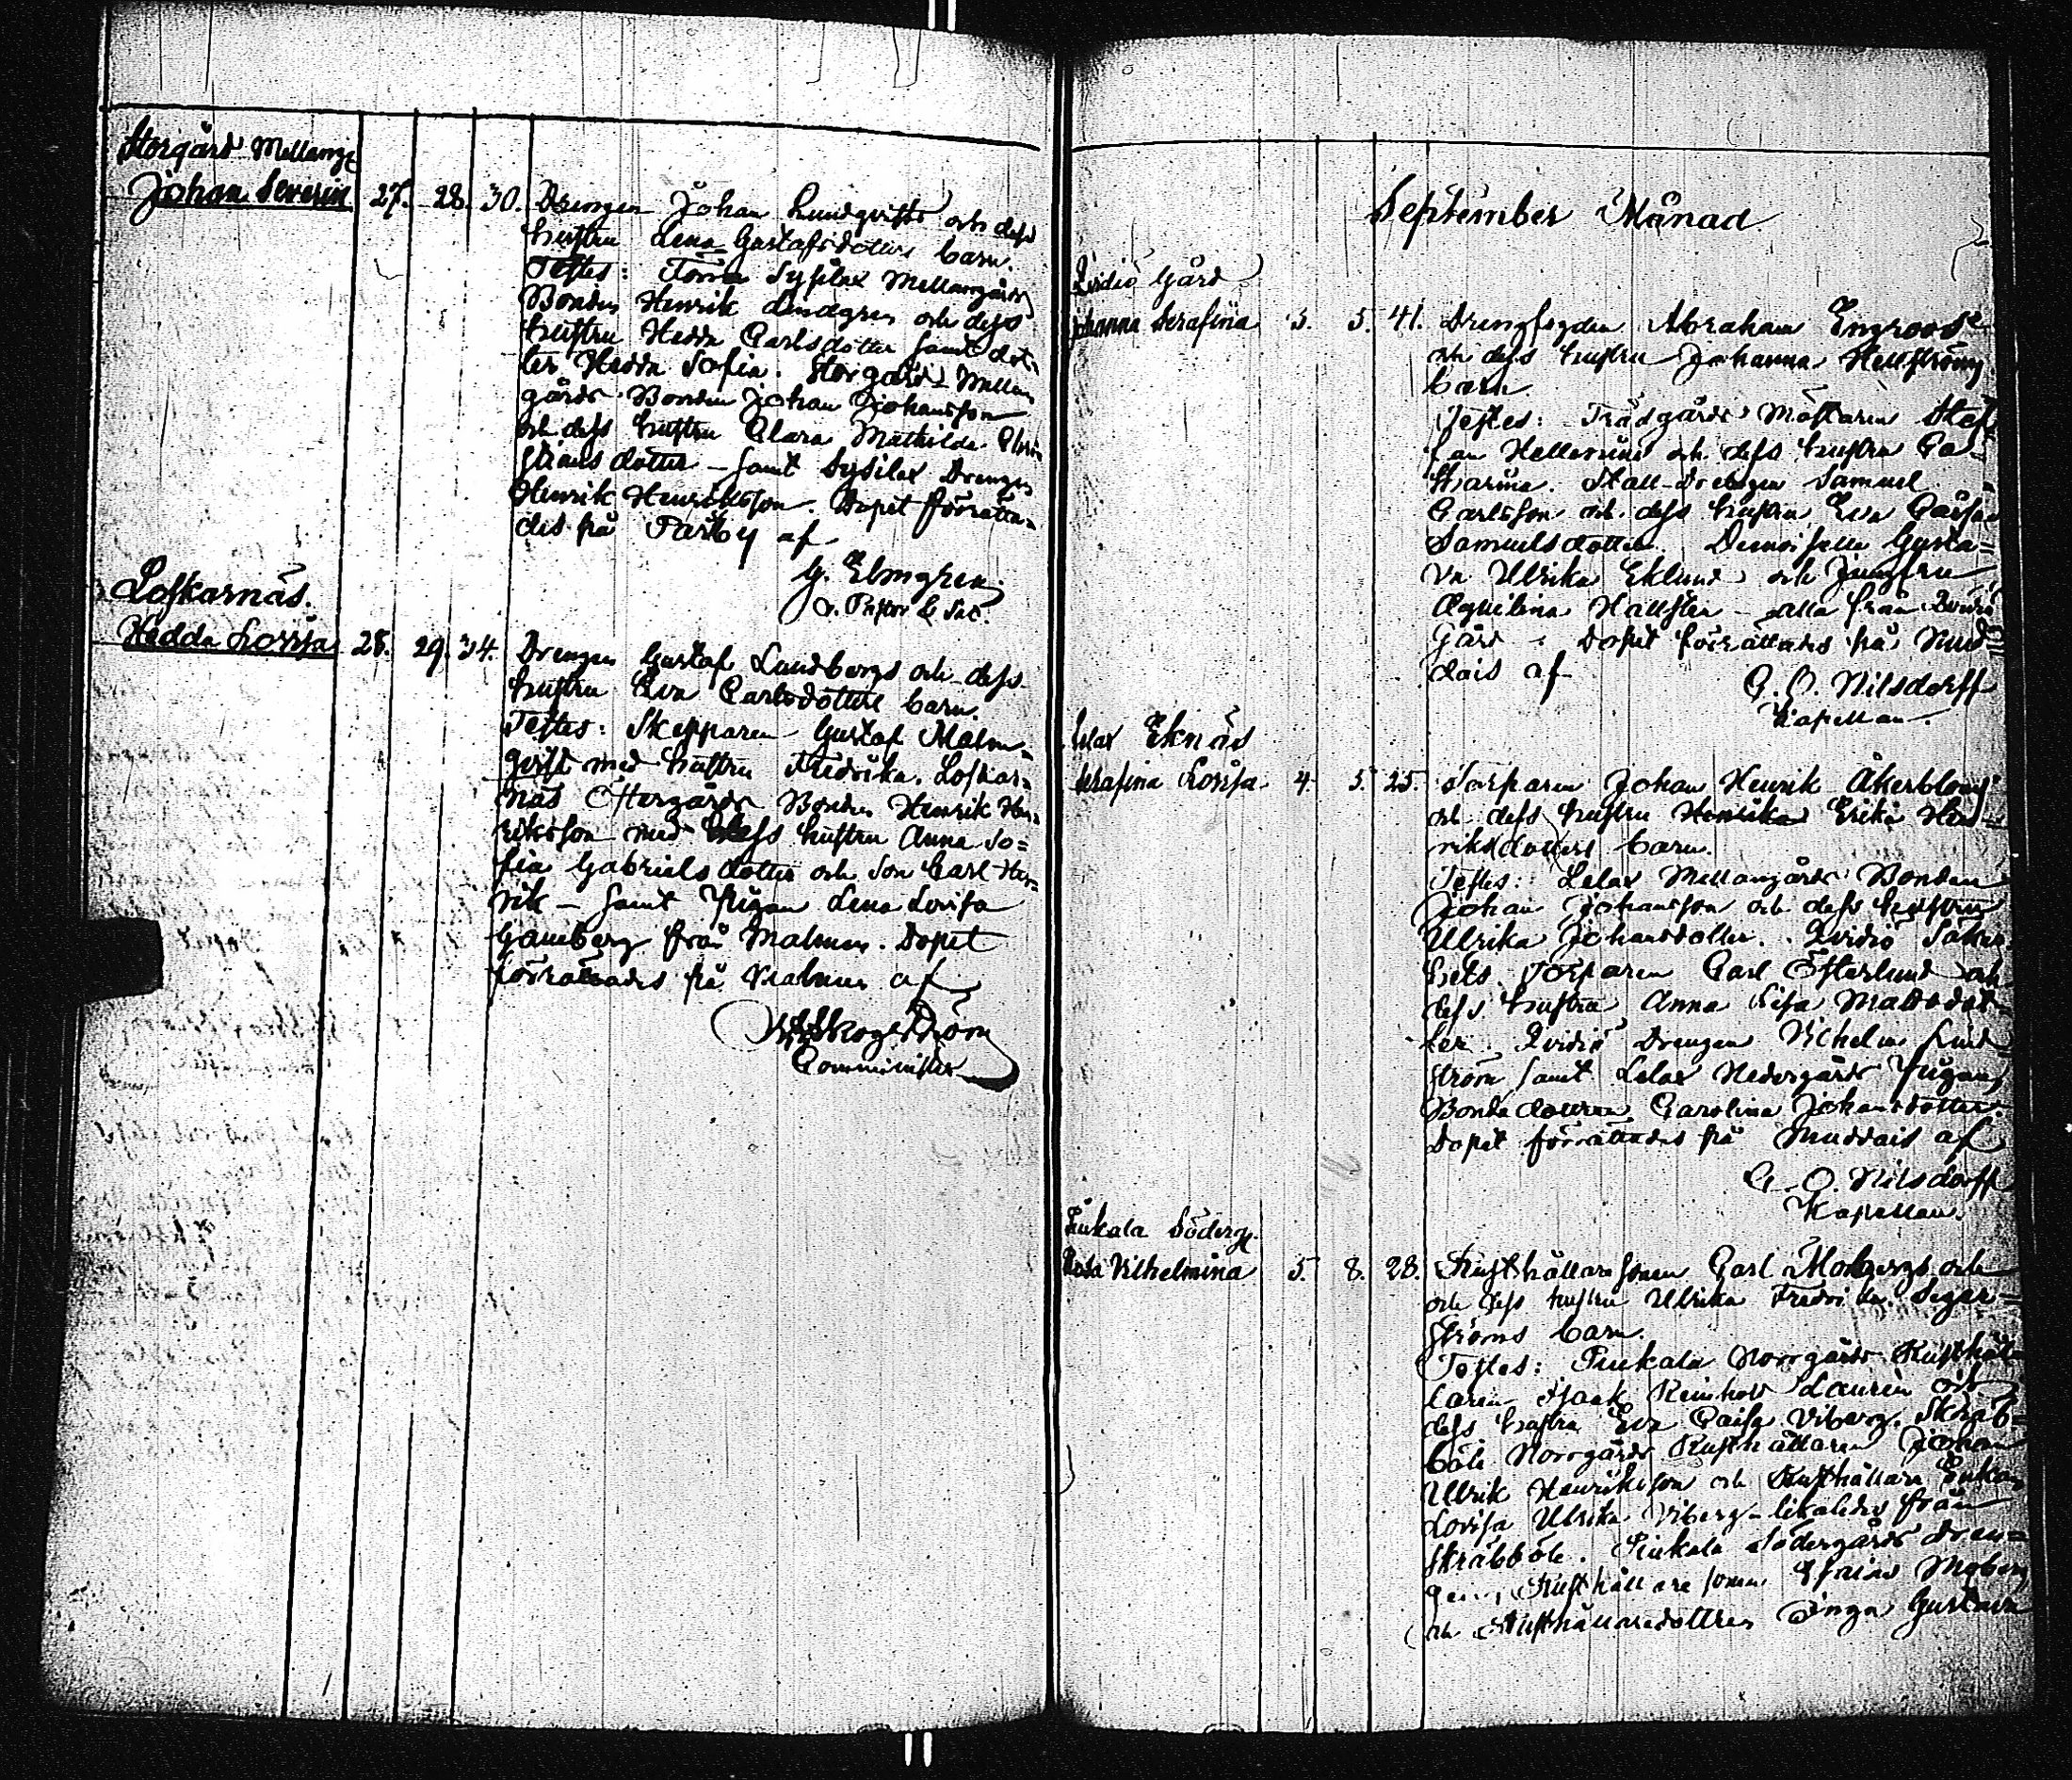 Storgård Mellang.
Johan Severin 27. 28. 30. Drengen Johan Lundqvists och dess
hustru Lena Gustafsdotters barn.
Testes: Sysilax Mellangårds
Bonden Henrik Lindgren och dess
hustru Hedda Carlsdotter samt dot-
ter Hedda Sofia. Storgård Mellan
gårds Bonden Johan Johansson
och dess hustru Clara Mathilda Chri
stiansdotter – samt Sysilax Drengen
Henrik Henriksson. Dopet förrätta-
des på Parby af
G. Elmgren.
v. Pastor & Sac.
Lofkarnäs.
Hedda Lovisa 28. 29. 34. Drengen Gustaf Lundbergs och dess
hustru Eva Carlsdotters barn.
Testes: Skepparen Gustaf Malm-
qvist med hustru Fredrika. Lofkar-
näs Östergårds Bonden Henrik Hen-
riksson med dess hustru Anna So=
fia Gabrielsdotter och son Carl Hen-
rik – samt Pigan Lena Lovisa
från Malmen. Dopet
förrättades på Malmen af
Skogström
Comminister
September Månad.
Qvidiö Gård
Johanna Serafina 3. 5. 41. Drengfogden Abraham Engroos
och dess hustru Johanna Hellströms
barn.
Testes: Trädgårds Mästaren Stef
fan och dess hustru Ca-
tharina. Stall-Drengen Samuel
Carlsson och dess hustru Eva Caisa
Samuelsdotter. Demoiselle Gusta=
va Ulrika Eklund och Jungfru
Hallsten – alla från Qvidiö
Gård. Dopet förrättades på Mud
dais af
G. O. Nilsdorff
Kapellan.
Lelax Eknäs
Serafina Lovisa 4. 5. 25. Torparen Johan Henrik Åkerbloms
och dess hustru Henrika Erika Hen-
riksdotters barn.
Testes: Lelax Mellangårds Bonden
Johan Johansson och dess hustru
Ulrika Johansdotter. Qvidiö
Torparen Carl Österlund och
dess hustru Anna Lisa Mattsdot-
ter. Qvidiö Drengen Vilhelm Lind-
ström samt Lelax Nedergårds Pigan,
Bonda dottren Carolina Johansdotter.
Dopet förrättades på Muddais af
G. O. Nilsdorff
Kapellan.
Söderg.
Vilhelmina 5. 8. 28. Rusthållaresonen Carl Mobergs och
och dess hustru Ulrika Fredrika Seger-
ströms barn.
Testes: Norrgårds Rusthål
laren Isaak Reinhold Laurén och
dess hustru Eva Caisa Viberg. Skräb-
böle Norrgårds Rusthållaren Johan
Ulrik Henriksson och Rusthållare Enkan
Lovisa Ulrika Viberg – likaledes från
Skräbböle. Södergårds Dren=
gen, Rusthållaresonen Efraim Moberg
och Rusthållaredottren Inga Gustava